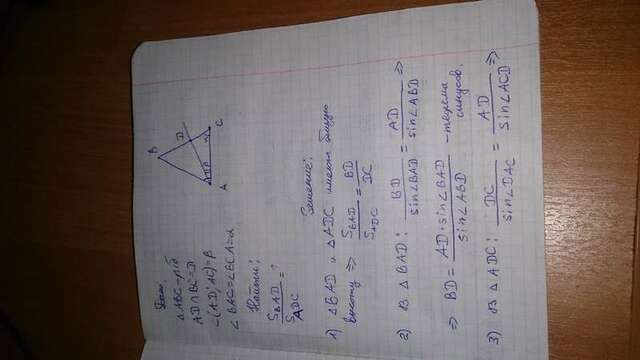 Дано:
△ABC – р/б
AD ∩ BC = D
∠(AD; AC) = β
∠BAC = ∠BCA = α
Найти:
S_BAD / S_ADC = ?
B
D
A
C
β
α
Решение:
1) △BAD и △ADC имеют общую
высоту ⇒ S_BAD / S_ADC = BD / DC
2) В △BAD: BD / sin∠BAD = AD / sin∠ABD ⇒
⇒ BD = AD · sin∠BAD / sin∠ABD – теорема
синусов.
3) В △ADC: DC / sin∠DAC = AD / sin∠ACD ⇒